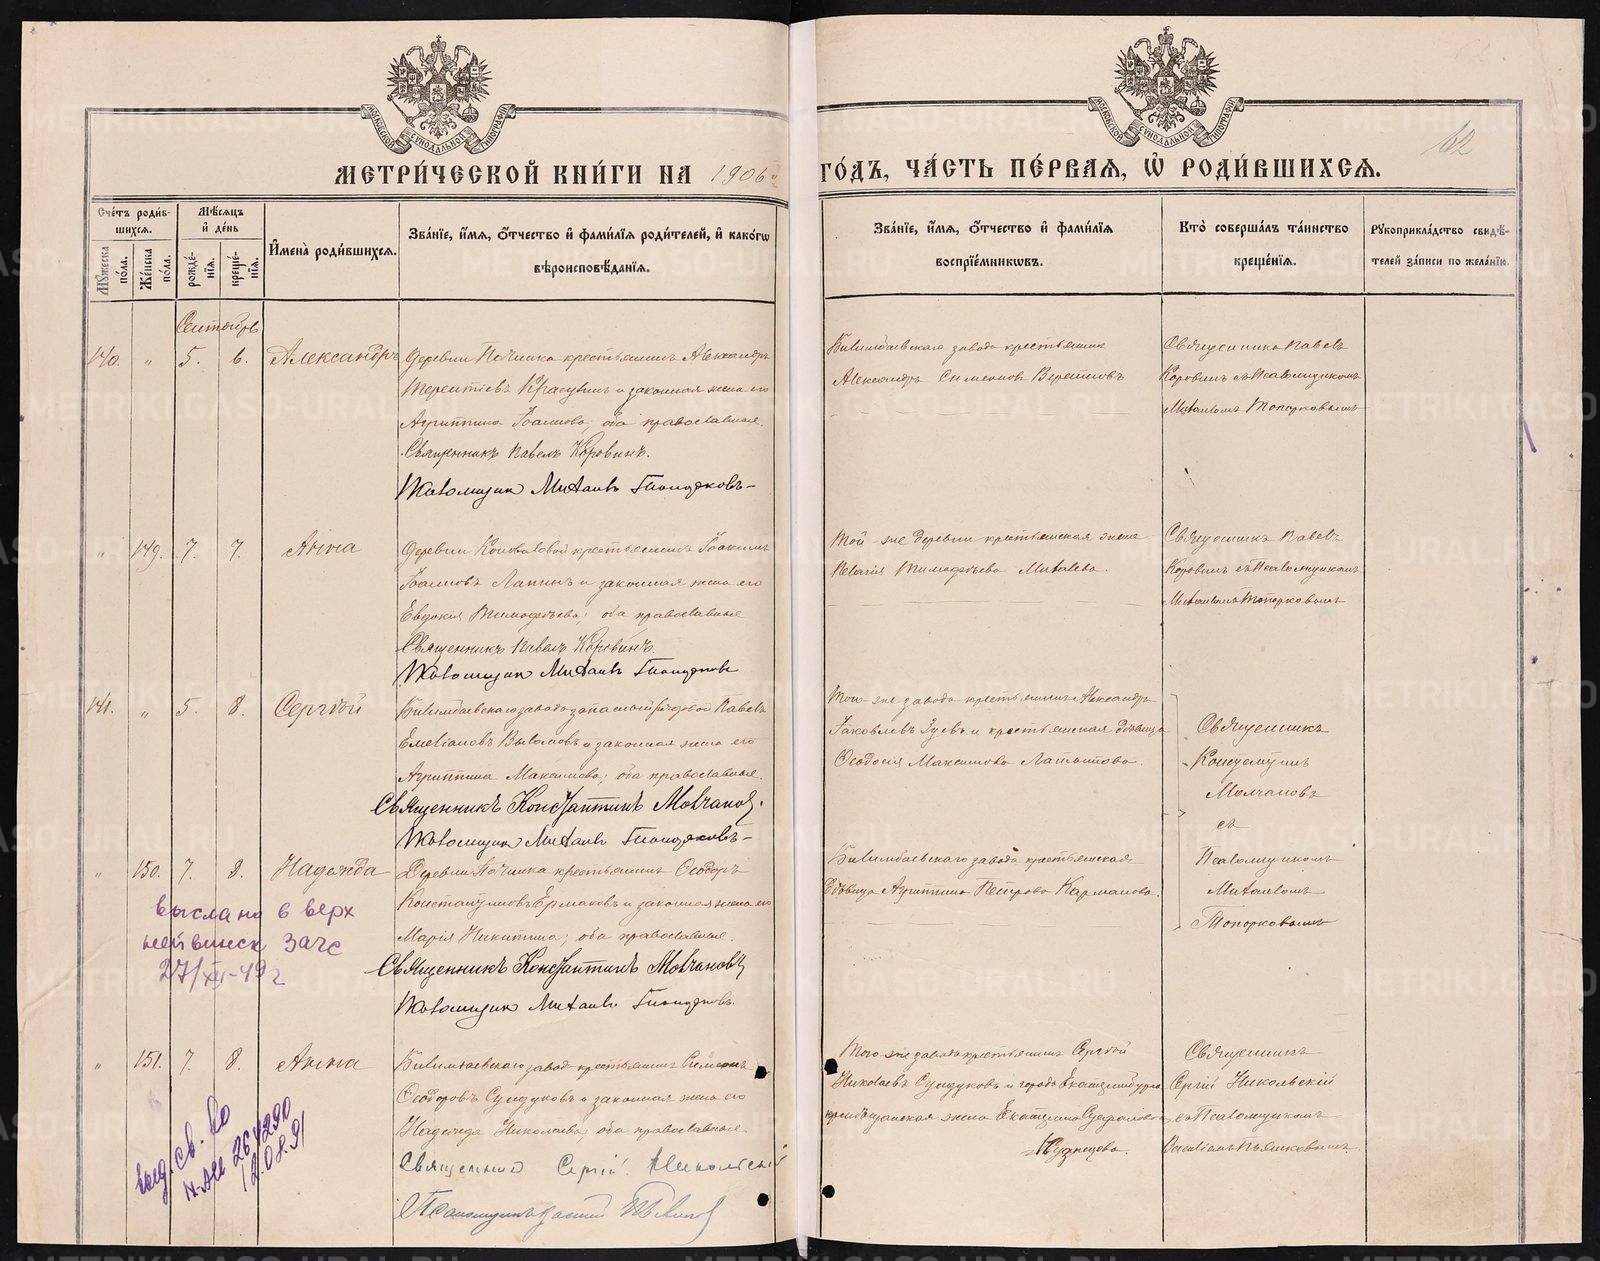 МЕТРИ́ЧЕСКОЙ КНИ́ГИ НА 1906 ГО́ДЪ, ЧА́СТЬ ПЕ́РВАѦ, Ѡ҆ РОДИ́ВШИХСѦ.
62
Сче́тъ роди́вшихсѧ.
Мꙋ́жеска по́ла.
Же́нска по́ла.
Мѣ́сѧцъ и҆ де́нь
рожде́нїѧ.
креще́нїѧ.
И҆мена̀ роди́вшихсѧ.
Зва́нїе, и҆́мѧ, ѻ҆́тчество и҆ фами́лїѧ роди́телей, и҆ како́гѡ
вѣроисповѣ́данїѧ.
Зва́нїе, и҆́мѧ, ѻ҆́тчество и҆ фами́лїѧ
воспрїе́мникѡвъ.
Кто̀ соверша́лъ та́инство
креще́нїѧ.
Рꙋкоприкла́дство свидѣ́-
телей за́писи по жела́нїю.
Сентябрь
140. " 5. 6. Александръ
Деревни Починка крестьянинъ Александръ
Терентіевъ и законная жена его
Агриппина Іоаннова, оба православные.
Священникъ Павелъ Коровинъ.
Псаломщик Михаилъ Топорковъ
Билимбаевскаго завода крестьянин
Александръ Симеонов
Священникъ Павелъ
Коровинъ съ Псаломщикомъ
Михаиломъ Топорковымъ
" 149. 7. 7. Анна
Деревни Коноваловой крестьянинъ Іоакимъ
Іоанновъ Лапинъ и законная жена его
Евдокія Тимофеева; оба православные
Священникъ Павелъ Коровинъ.
Псаломщик Михаилъ Топорковъ
Той-же деревни крестьянская жена
Пелагія Тимофеева Михалева.
Священникъ Павелъ
Коровинъ съ Псаломщикомъ
Михаиломъ Топорковымъ
141. " 5. 8. Сергѣй
Билимбаевскаго завода запасный рядовой Павелъ
Емеліановъ и законная жена его
Агриппина Максимова; оба православные.
Священникъ Константинъ Молчановъ.
Псаломщик Михаилъ Топорковъ
Того-же завода крестьянинъ Александръ
Іаковлевъ Зуевъ и крестьянская дѣвица
Ѳеодосія Максимова
Священникъ
Константинъ
Молчановъ
съ
Псаломщикомъ
Михаиломъ
Топорковымъ
" 150. 7. 8. Надежда
Деревни Починка крестьянинъ Ѳеодоръ
Константиновъ Ермаковъ и законная жена его
Марія Никитина; оба православные.
Священникъ Константинъ Молчановъ
Псаломщик Михаилъ Топорковъ.
Билимбаевскаго завода крестьянская
вдовица Агриппина Петрова Карманова.
выслано в верх
нейвинск загс
27/XII-49 г
" 151. 7. 8. Анна
Билимбаевскаго завода крестьянинъ Симеонъ
Ѳеодоровъ Сундуковъ и законная жена его
Надежда Николаева; оба православные
Священник Сергій Никольскій
Того-же завода крестьянинъ Сергѣй
Николаевъ Сундуковъ и города Екатеринбурга
жена Екатерина
Кузнецова.
Священникъ
Сергій Никольскій
съ Псаломщикомъ
выд. св. во
II-АИ 264290
12.08.91